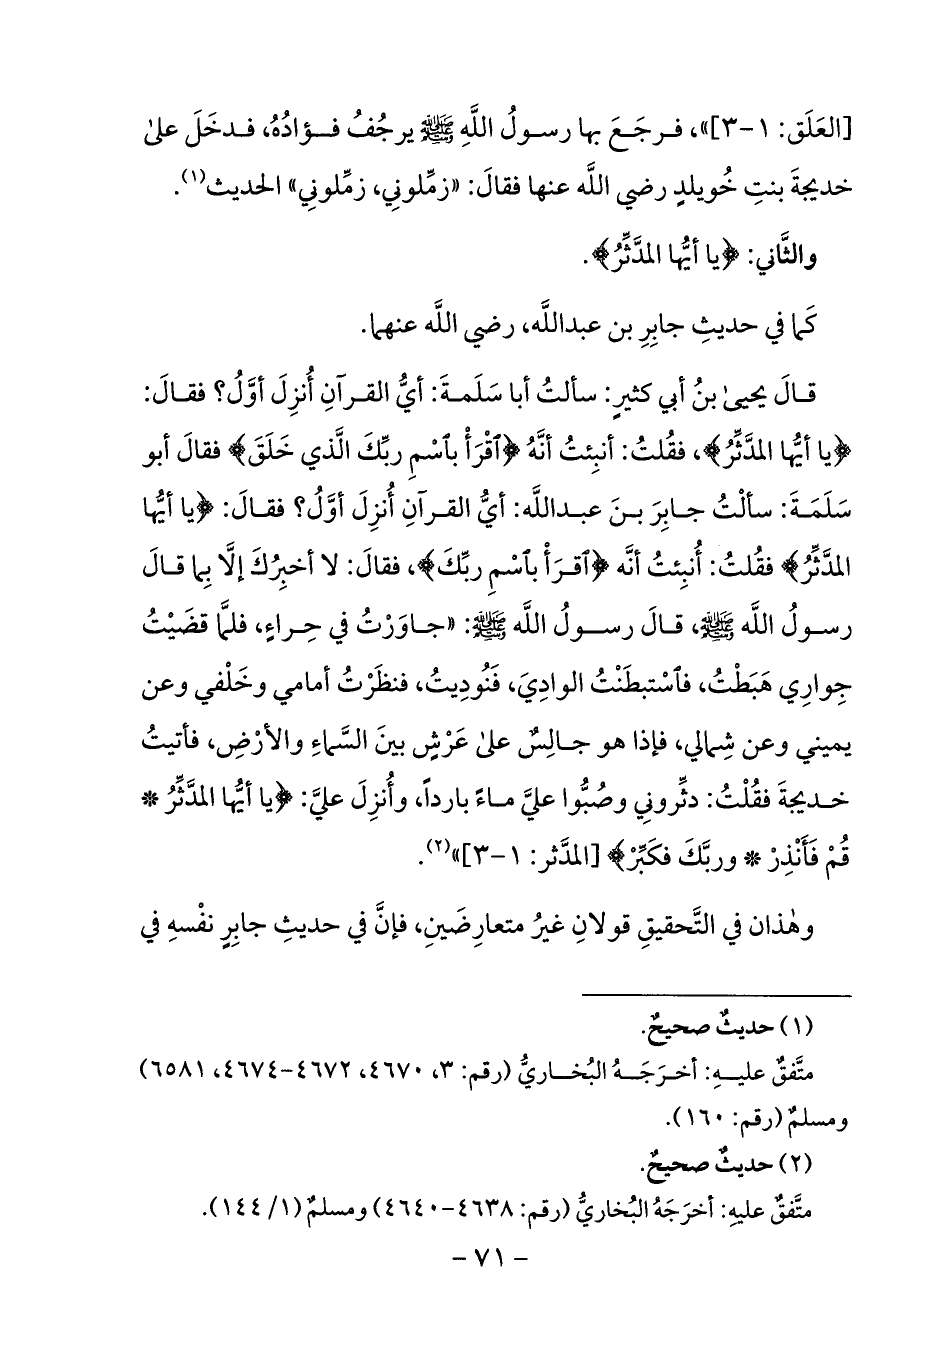 [العَلَق: ١-٣]»، فـرجَـعَ بها رسـولُ اللَّهِ ﷺ يرجُفُ فـؤادُهُ، فـدخَلَ علىٰ
خديجةَ بنتِ خُويلدٍ رضي اللَّه عنها فقالَ: «زمِّلوني، زمِّلوني» الحديث(١).
والثَّاني: ﴿يا أيُّها المدَّثِّرُ﴾.
كَما في حديثِ جابِرِ بن عبداللَّه، رضي اللَّه عنهما.
قـالَ يحيىٰ بنُ أبي كثيرٍ: سألتُ أبا سَلَمـةَ: أيُّ القـرآنِ أُنزِلَ أوَّلُ؟ فقـالَ:
﴿يا أيُّها المدَّثِّرُ﴾، فقُلتُ: أنبِئتُ أنَّهُ ﴿ٱقْرَأْ بٱسْمِ ربِّكَ الَّذي خَلَقَ﴾ فقالَ أبو
سَلَمَـةَ: سألْتُ جـابِرَ بـنَ عبـداللَّه: أيُّ القـرآنِ أُنزِلَ أوَّلُ؟ فقـالَ: ﴿يا أيُّها
المدَّثِّرُ﴾ فقُلتُ: أُنبِئتُ أنَّه ﴿ٱقـرَأْ بٱسْمِ ربِّكَ﴾، فقالَ: لا أخبِرُكَ إلَّا بِما قـالَ
رسـولُ اللَّه ﷺ، قـالَ رسـولُ اللَّه ﷺ: «جـاوَرْتُ في حِـراءٍ، فلمَّا قضَيْتُ
جِوارِي هَبَطْتُ، فٱسْتبطَنْتُ الوادِيَ، فَنُودِيتُ، فنظَرْتُ أمامي وخَلْفي وعن
يميني وعن شِمالي، فإذا هو جـالِسٌ علىٰ عَرْشٍ بينَ السَّماءِ والأرْضِ، فأتيتُ
خـديجةَ فقُلْتُ: دثِّروني وصُبُّوا عليَّ مـاءً بارداً، وأُنزِلَ عليَّ: ﴿يا أيُّها المدَّثِّرُ *
قُمْ فَأَنْذِرْ * وربَّكَ فكَبِّرْ﴾ [المدَّثر: ١-٣]»(٢).
وهٰذان في التَّحقيقِ قولانِ غيرُ متعارِضَينِ، فإنَّ في حديثِ جابِرٍ نفْسهِ في
(١) حديثٌ صحيحٌ.
متَّفقٌ عليـهِ: أخـرَجَـهُ البُخـاريُّ (رقم: ٣، ٤٦٧٠، ٤٦٧٢-٤٦٧٤، ٦٥٨١)
ومسلمٌ (رقم: ١٦٠).
(٢) حديثٌ صحيحٌ.
متَّفقٌ عليهِ: أخرَجَهُ البُخاريُّ (رقم: ٤٦٣٨-٤٦٤٠) ومسلمٌ (١/ ١٤٤).
- ٧١ -